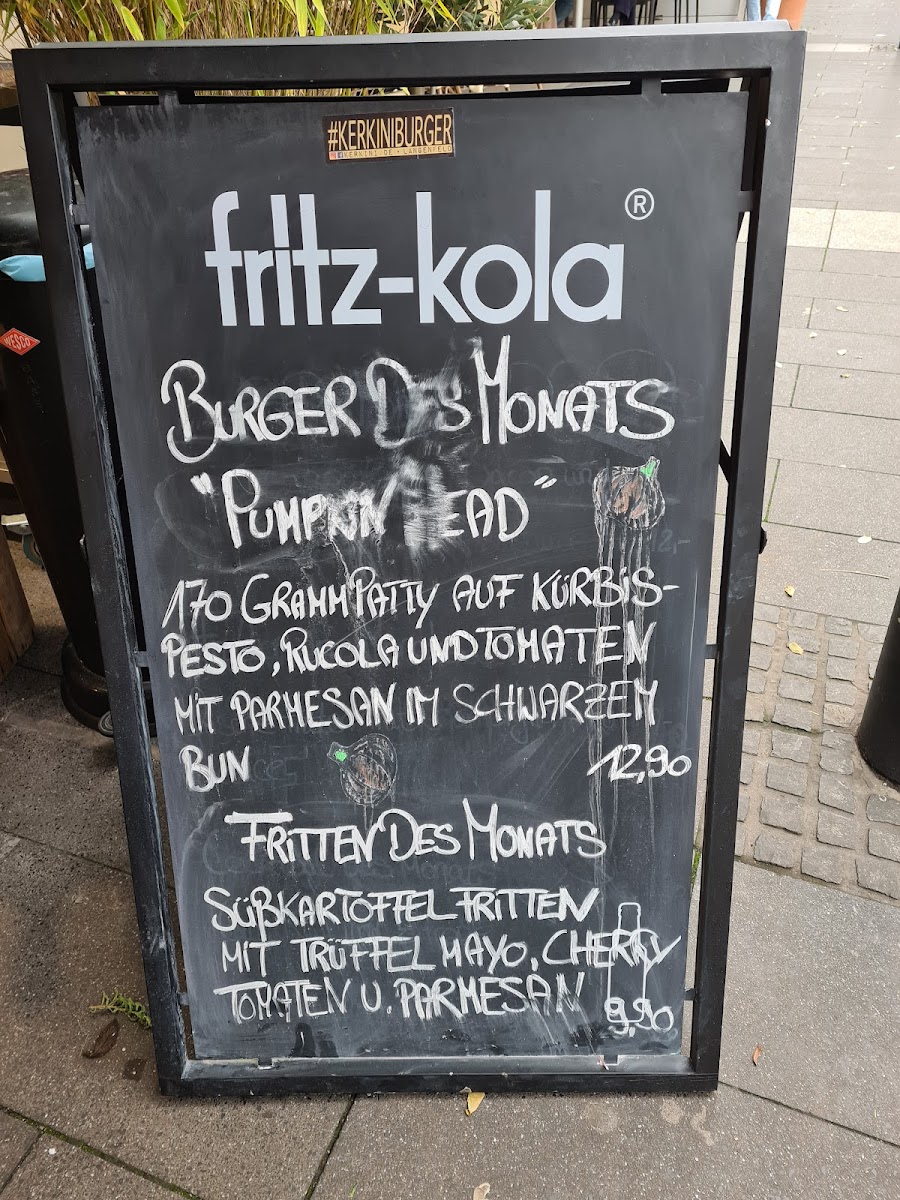 #KERKINIBURGER
KERKINI.DE • LANGENFELD
fritz-kola®
BURGER DES MONATS
"PUMPKIN HEAD"
170 GRAMM PATTY AUF KÜRBIS-
PESTO, RUCOLA UND TOMATEN
MIT PARMESAN IM SCHWARZEM
BUN 12,90
FRITTEN DES MONATS
SÜßKARTOFFEL FRITTEN
MIT TRÜFFEL MAYO, CHERRY
TOMATEN U. PARMESAN
9,90
WESCO